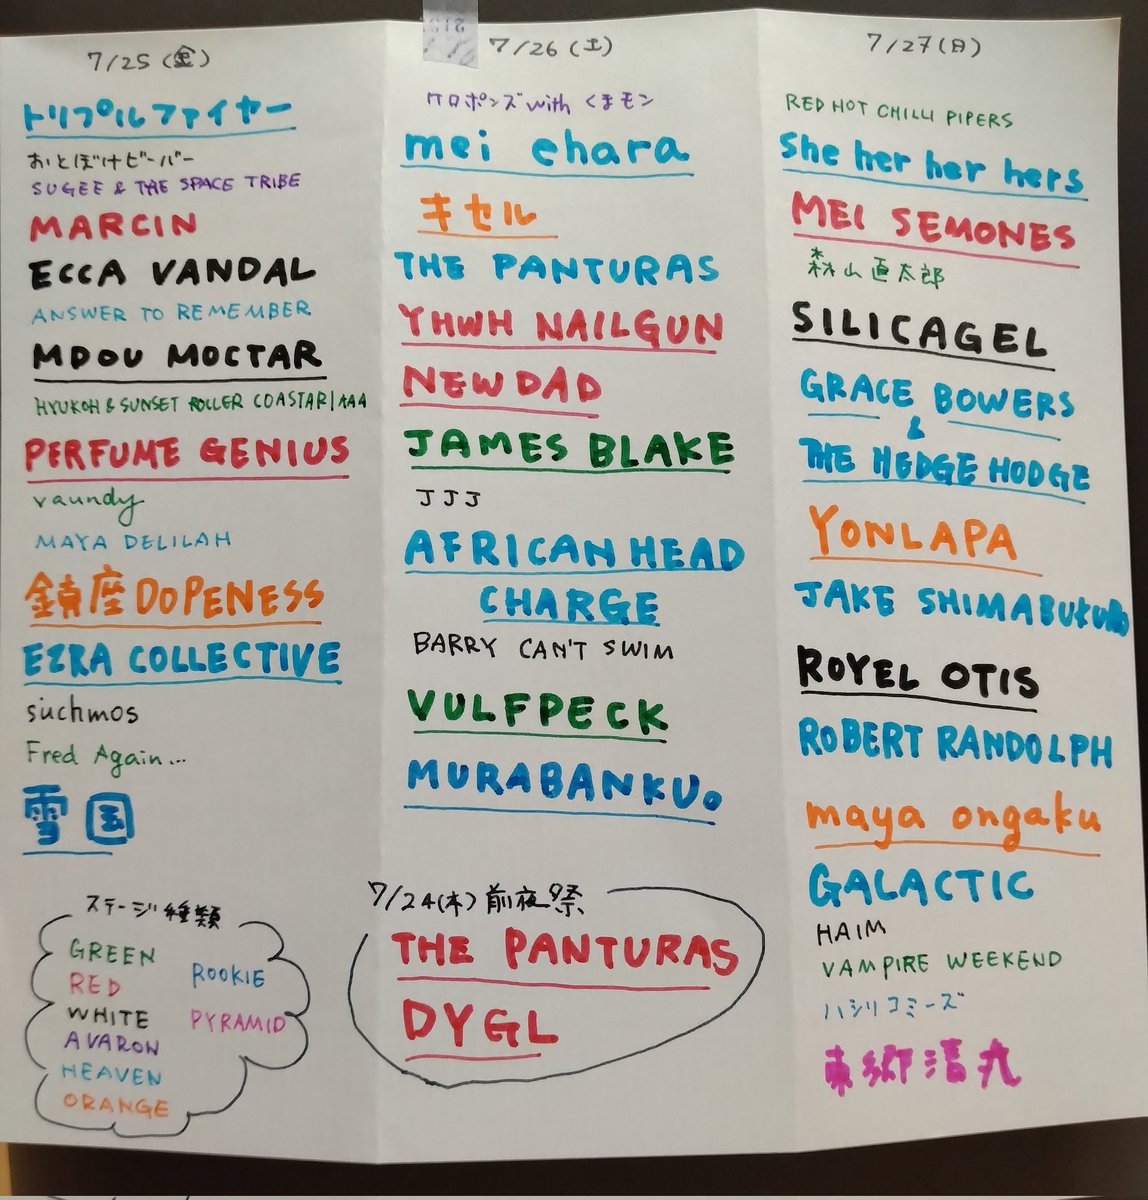 7/25(金)
トリプルファイヤー
おとぼけビ〜バ〜
SUGEE & THE SPACE TRIBE
MARCIN
ECCA VANDAL
ANSWER TO REMEMBER
MDOU MOCTAR
HYUKOH & SUNSET ROLLER COASTAR|AAA
PERFUME GENIUS
vaundy
MAYA DELILAH
鎮座DOPENESS
EZRA COLLECTIVE
suchmos
Fred Again...
雪国
ステージ種類
GREEN
RED
WHITE
AVARON
HEAVEN
ORANGE
ROOKIE
PYRAMID
7/26(土)
ケロポンズwith くまモン
mei ehara
キセル
THE PANTURAS
YHWH NAILGUN
NEWDAD
JAMES BLAKE
JJJ
AFRICAN HEAD
CHARGE
BARRY CAN'T SWIM
VULFPECK
MURABANKU。
7/24(木)前夜祭
THE PANTURAS
DYGL
7/27(日)
RED HOT CHILLI PIPERS
she her her hers
MEI SEMONES
森山直太郎
SILICAGEL
GRACE BOWERS
&
THE HEDGE HODGE
YONLAPA
JAKE SHIMABUKURO
ROYEL OTIS
ROBERT RANDOLPH
maya ongaku
GALACTIC
HAIM
VAMPIRE WEEKEND
ハシリコミーズ
東郷清丸